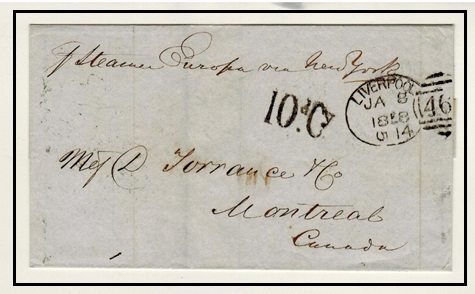 p Steamer Europa via New York
LIVERPOOL
JA 8
1858
14
466
10.d Cy
D Torrance & Co
Montreal
Canada